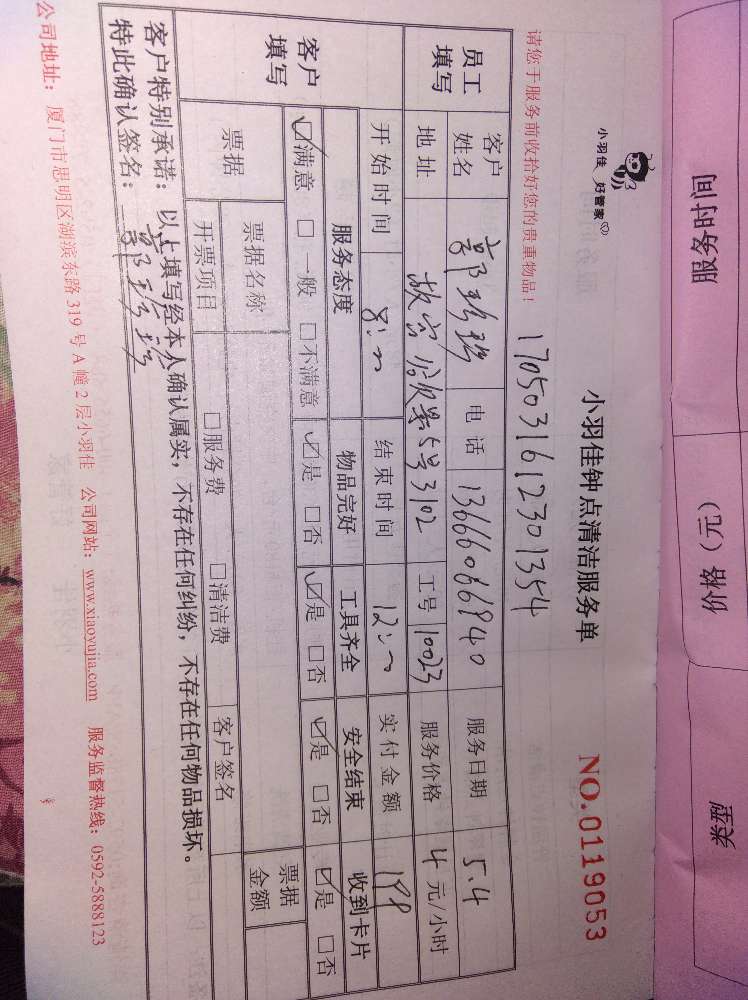 服务时间 价格（元） 类型
小羽佳 好管家
小羽佳钟点清洁服务单
NO.0119053
请您于服务前收拾好您的贵重物品！
1705031612301354
员工填写 客户姓名 郭珍珍 电话 13666066840 服务日期 5.4
地址 5号3102 工号 10023 服务价格 4 元/小时
客户填写 开始时间 8:00 结束时间 12:00 实付金额 199
服务态度 物品完好 工具齐全 安全结束 收到卡片
☑满意 □一般 □不满意 ☑是 □否 ☑是 □否 ☑是 □否 ☑是 □否
票据 票据名称 客户签名 票据金额
开票项目 □服务费 □清洁费
客户特别承诺：以上填写经本人确认属实，不存在任何纠纷，不存在任何物品损坏。
特此确认签名：郭珍珍
公司地址：厦门市思明区湖滨东路319号A幢2层小羽佳 公司网站：www.xiaoyujia.com 服务监督热线：0592-5888123